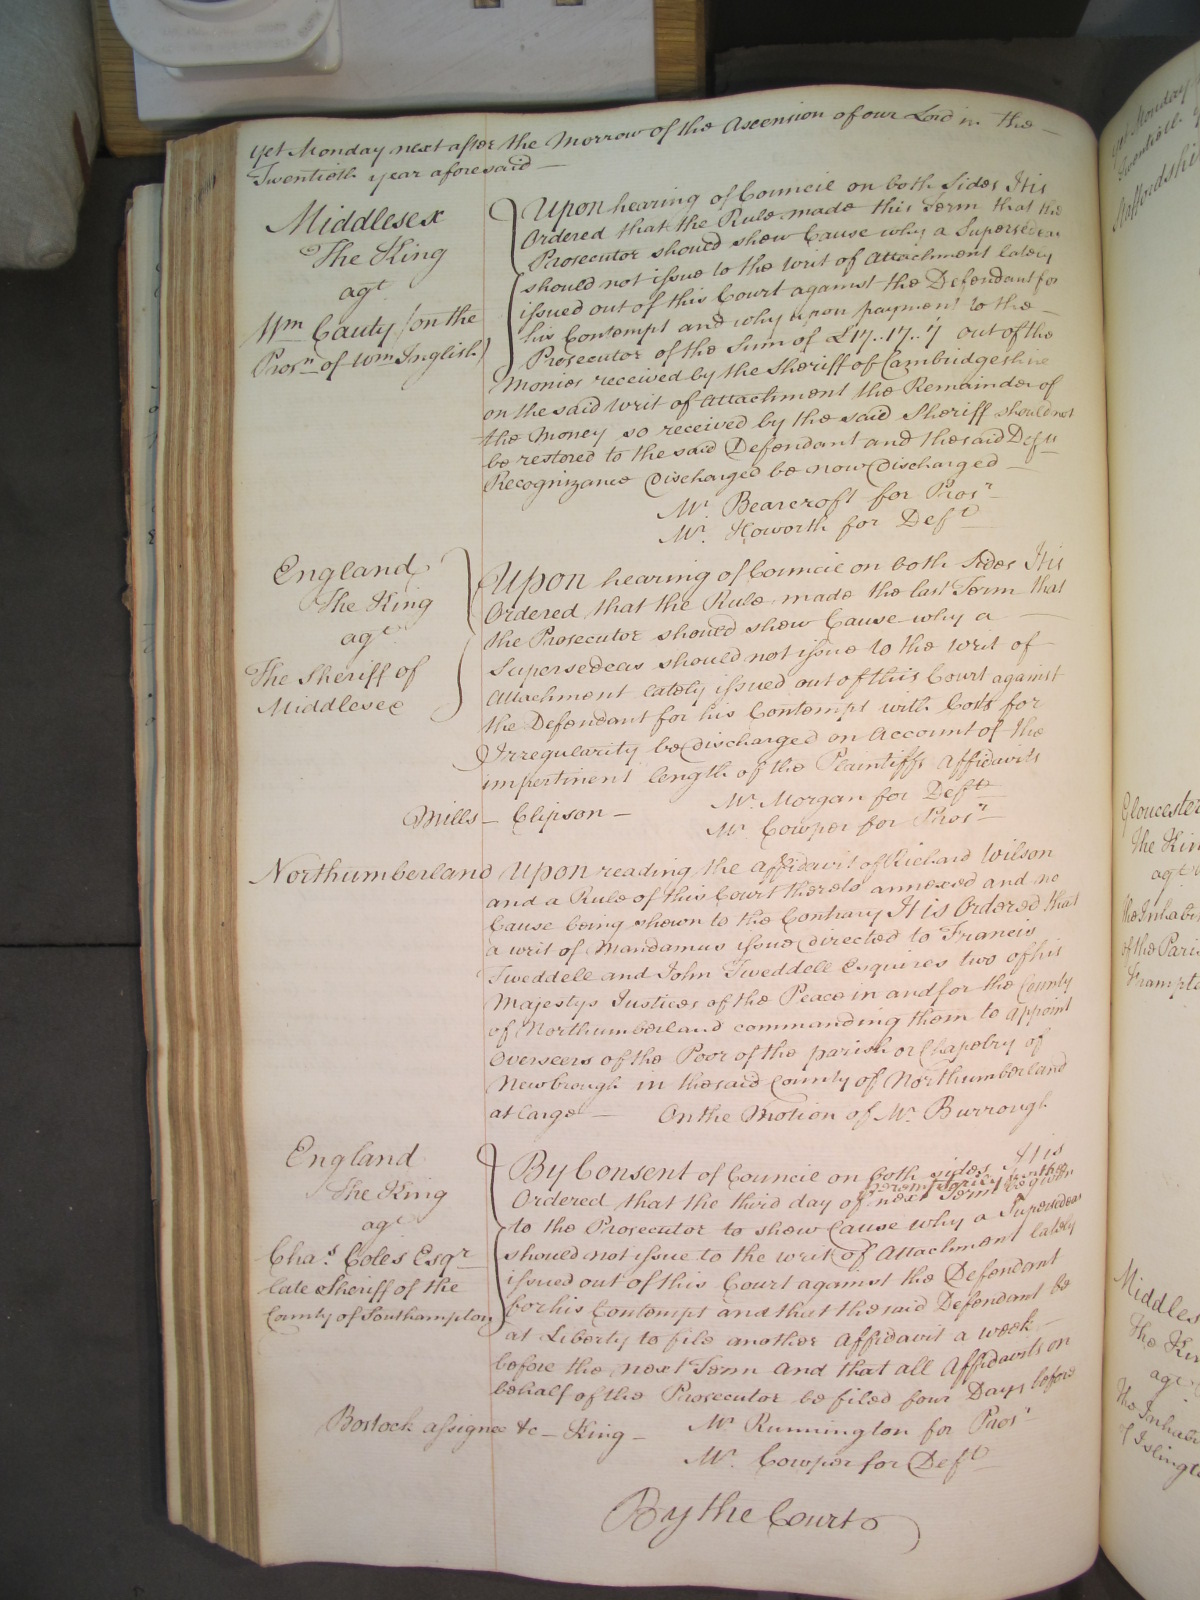 Yet Monday next after the Morrow of the Ascension of our Lord in the
Twentieth year aforesaid
Middlesex
The King
agt
Wm Cauty (on the
Prosn of Wm Inglish)
Upon hearing of Council on both Sides It is
Ordered that the Rule made this Term that the
Prosecutor should shew Cause why a Supersedeas
should not issue to the Writ of Attachment lately
issued out of this Court against the Defendant for
his Contempt and why upon payment to the
Prosecutor of the Sum of £17..17..7 out of the
Monies received by the Sheriff of Cambridgeshire
on the said Writ of Attachment the Remainder of
the Money so received by the said Sheriff should not
be restored to the said Defendant and the said Defts
Recognizance discharged be now Discharged
Mr. Bearcroft for Prosr
Mr. Howorth for Deft
England
The King
agt
The Sheriff of
Middlesex
Upon hearing of Council on both Sides It is
Ordered that the Rule made the last Term that
the Prosecutor should shew Cause why a
Supersedeas should not issue to the Writ of
Attachment lately issued out of this Court against
the Defendant for his Contempt with Costs for
Irregularity be discharged on Account of the
impertinent length of the Plaintiffs Affidavits
Mr. Morgan for Deft
Mills - Clipson - Mr Cowper for Prosr
Northumberland Upon reading the Affidavit of Richard Wilson
and a Rule of this Court thereto annexed and no
Cause being shewn to the Contrary It is Ordered that
a writ of Mandamus issue directed to Francis
Tweddell and John Tweddell Esquires two of his
Majestys Justices of the Peace in and for the County
of Northumberland commanding them to appoint
Overseers of the Poor of the parish or Chapelry of
Newbrough in the said County of Northumberland
at large - On the Motion of Mr. Burrough
England
The King
agt
Chas. Coles Esqr
late Sheriff of the
County of Southampton
By Consent of Council on both sides It is
peremptorily further
Ordered that the third day of next Term be given
to the Prosecutor to shew Cause why a Supersedeas
should not issue to the writ of Attachment lately
issued out of this Court against the Defendant
for his Contempt and that the said Defendant be
at Liberty to file another Affidavit a week
before the next Term and that all Affidavits on
behalf of the Prosecutor be filed four Days before
Bostock assignee &c - King - Mr Runnington for Prosr
Mr. Cowper for Deft
By the Court
Gloucester
the Inhabi
of the Pari
Frampto
Middles
The Kin
agt
The Inhabi
of Islingt